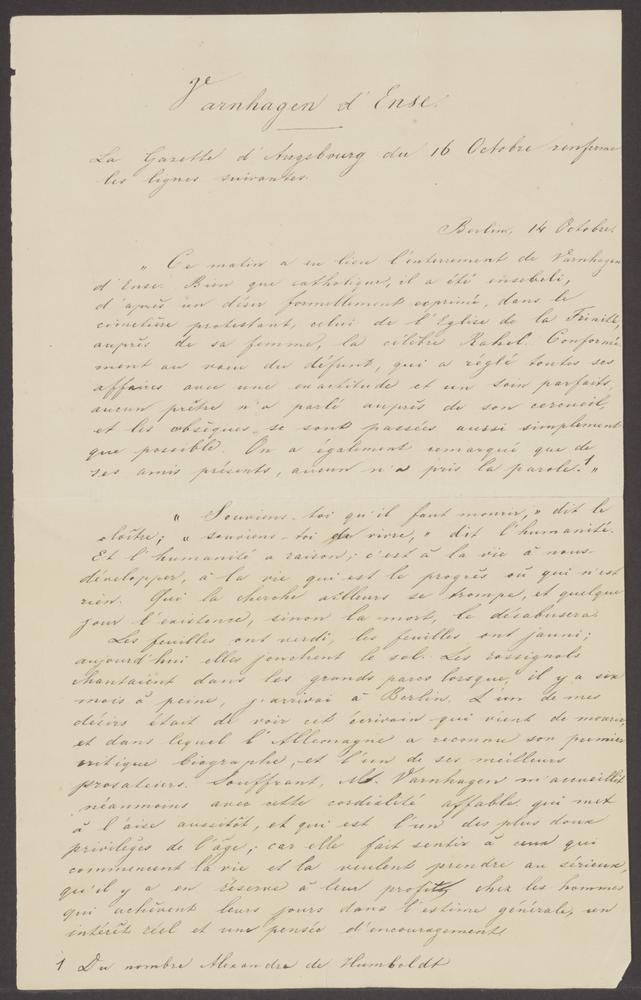 Varnhagen d'Ense.
La Gazette d'Augsbourg du 16 Octobre renferme
les lignes suivantes.
Berlin, 14 Octobre.
" Ce matin a eu lieu l'enterrement de Varnhagen
d'Ense. Bien que catholique, il a été enseveli,
d'après un désir formellement exprimé, dans le
cimetière protestant, celui de l'Eglise de la Trinité,
auprès de sa femme, la célèbre Rahel. Conformé-
ment au vœu du défunt, qui a réglé toutes ses
affaires avec une exactitude et un soin parfaits,
aucun prêtre n'a parlé auprès de son cercueil,
et les obsèques se sont passées aussi simplement
que possible. On a également remarqué que de
ses amis présents, aucun n'a pris la parole.1 "
" Souviens-toi qu'il faut mourir, " dit le
cloître; " souviens-toi de vivre, " dit l'humanité.
Et l'humanité a raison; c'est à la vie à nous
développer, à la vie qui est le progrès ou qui n'est
rien. Qui la cherche ailleurs se trompe, et quelque
jour l'existence, sinon la mort, le désabusera.
Les feuilles ont verdi, les feuilles ont jauni;
aujourd'hui elles jonchent le sol. Les rossignols
chantaient dans les grands parcs lorsque, il y a six
mois à peine, j'arrivai à Berlin. L'un de mes
désirs était de voir cet écrivain qui vient de mourir,
et dans lequel l'Allemagne a reconnu son premier
critique biographe, et l'un de ses meilleurs
prosateurs. Souffrant, M. Varnhagen m'accueillit
néanmoins avec cette cordialité affable qui met
à l'aise aussitôt, et qui est l'un des plus doux
privilèges de l'âge; car elle fait sentir à ceux qui
commencent la vie et la veulent prendre au sérieux,
qu'il y a en réserve à leur profit, chez les hommes
qui achèvent leurs jours dans l'estime générale, un
intérêt réel et une pensée d'encouragement.
1 Du nombre Alexandre de Humboldt